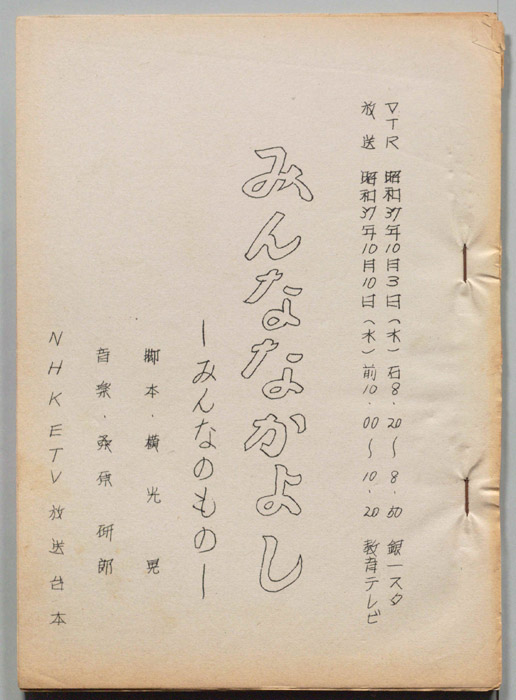 VTR 昭和37年10月3日(木)后8.20〜8.50 銀一スタ
放送 昭和37年10月10日(木)前10.00〜10.20 教育テレビ
みんななかよし
ーみんなのものー
脚本・横光晃
音楽・桑原研郎
NHKETV放送台本